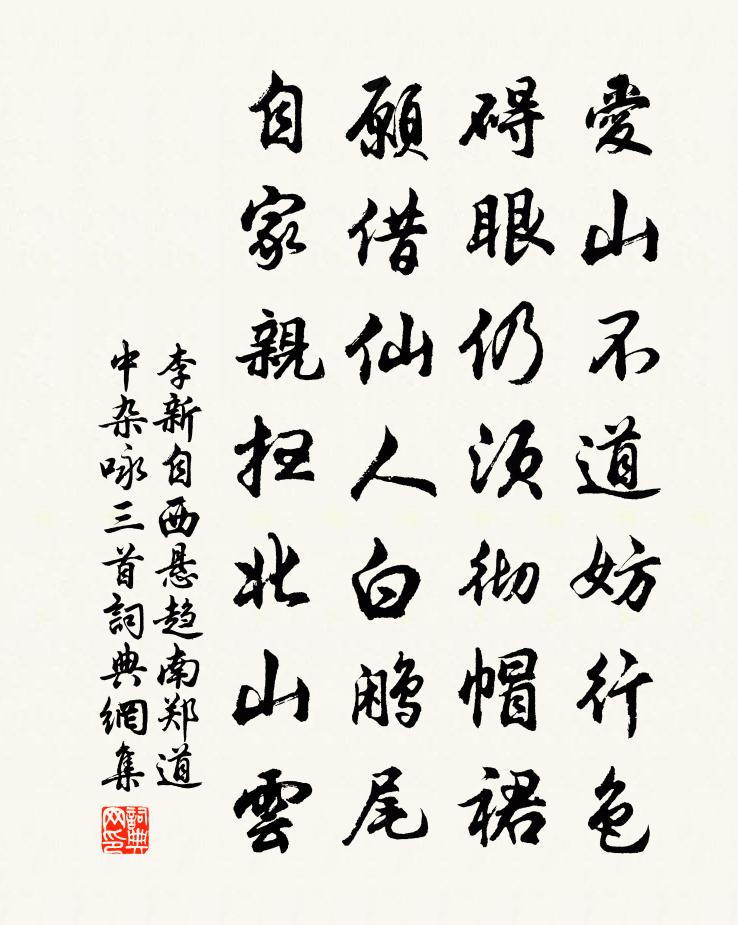 愛山不道妨行色
碍眼仍须彻帽裙
願借仙人白鹇尾
自家親扫北山雲
李新自西悬趋南郑道
中杂咏三首詞典網集
詞典网印